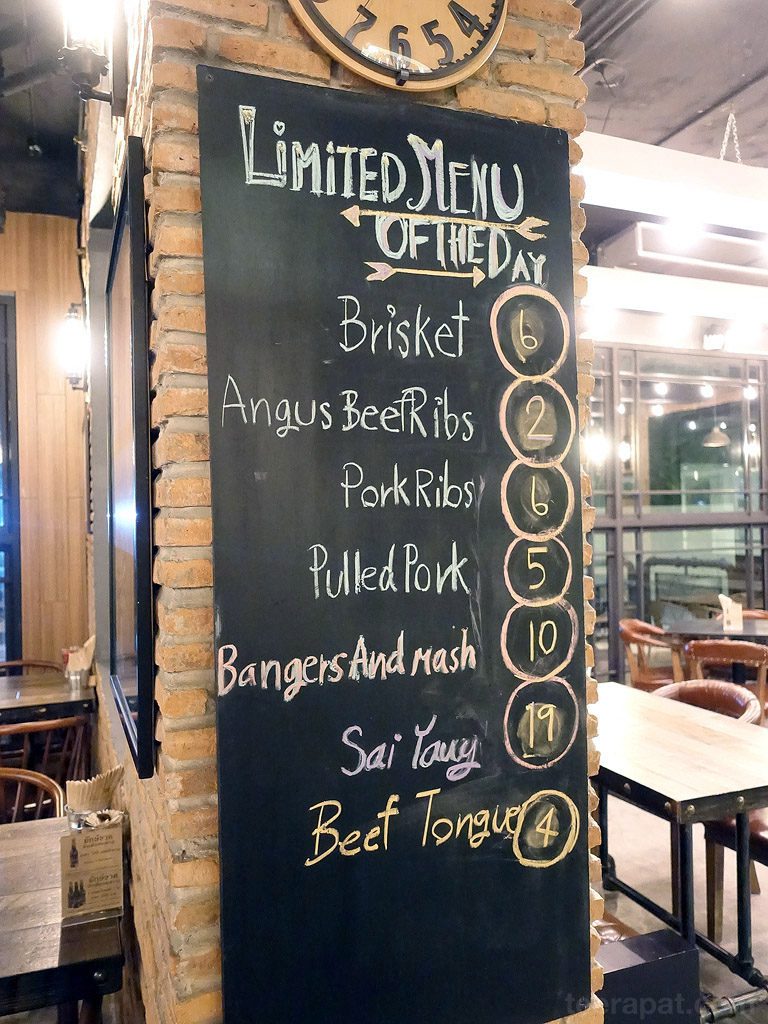 7 6 5 4
LIMITED MENU
OF THE DAY
Brisket 6
Angus Beef Ribs 2
Pork Ribs 6
Pulled Pork 5
Bangers And Mash 10
Sai Yauy 19
Beef Tongue 4